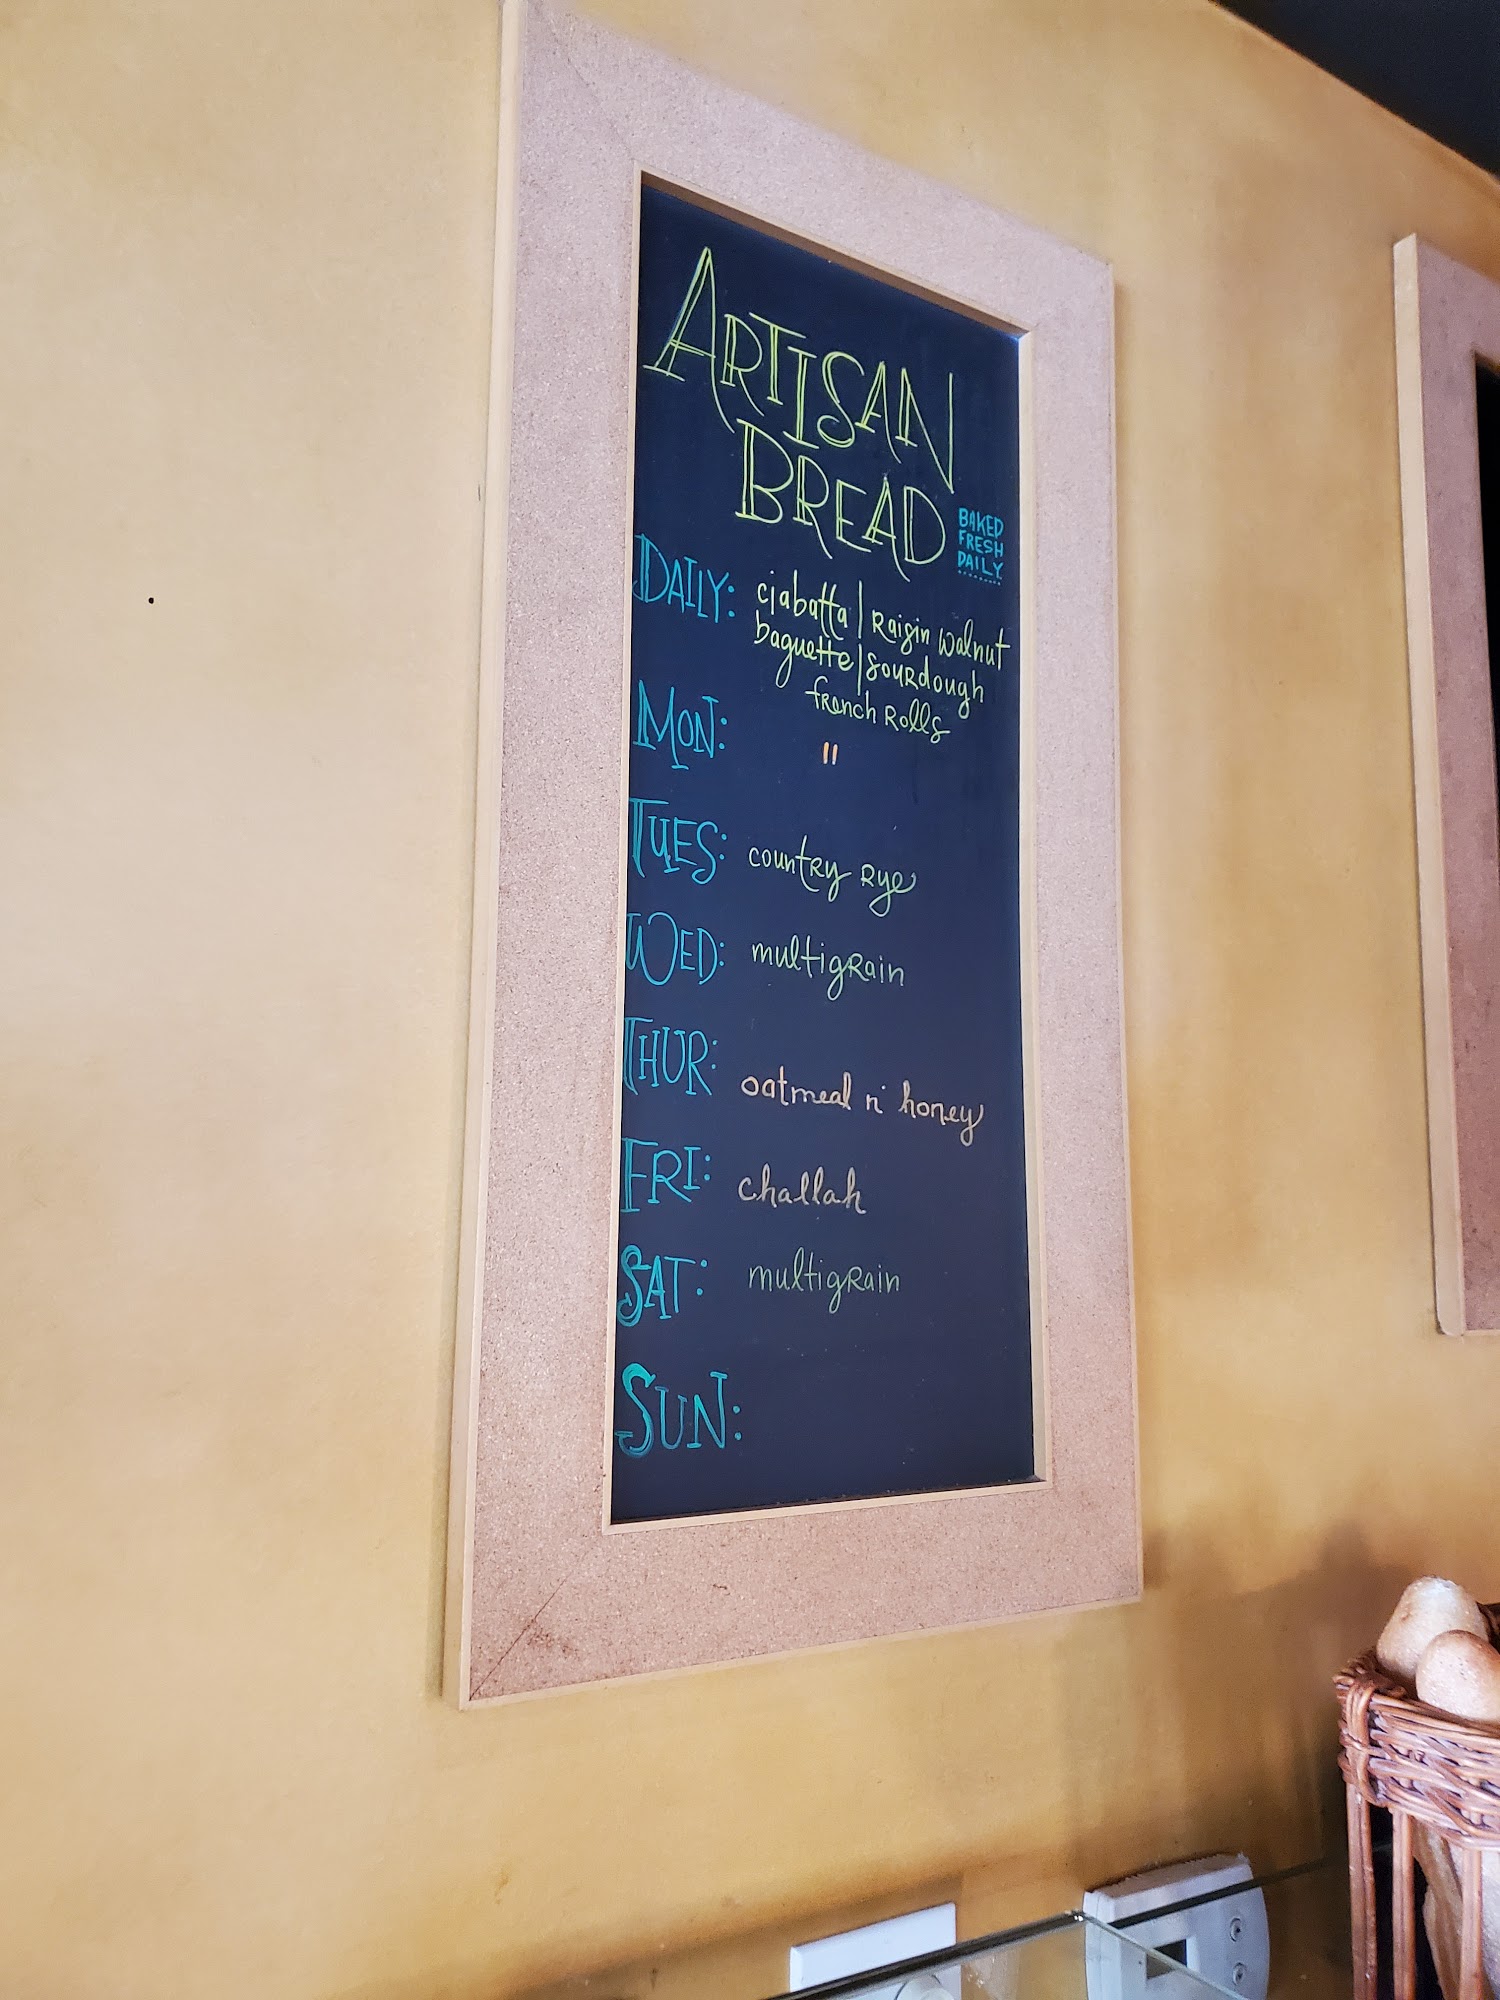 ARTISAN
BREAD
BAKED
FRESH
DAILY
DAILY: ciabatta | Raisin walnut
baguette | souRdough
fRench Rolls
MON: "
TUES: countRy Rye
WED: multigRain
THUR: oatmeal n' honey
FRI: challah
SAT: multigRain
SUN: